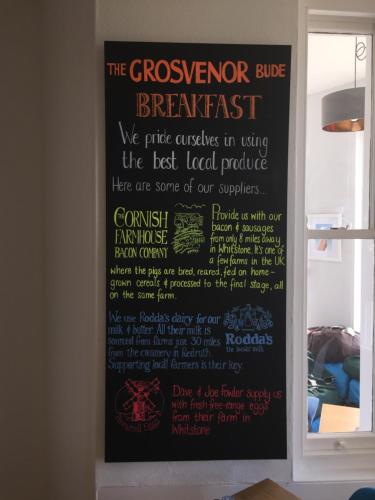 THE GROSVENOR BUDE
BREAKFAST
We pride ourselves in using
the best local produce
Here are some of our suppliers...
THE CORNISH
FARMHOUSE
BACON COMPANY
Provide us with our
bacon & sausages
from only 8 miles away
in Whitstone. It's one of
a few farms in the UK
where the pigs are bred, reared, fed on home-
grown cereals & processed to the final stage, all
on the same farm.
We use Rodda's dairy for our
milk & butter. All their milk is
sourced from farms just 30 miles
from the creamery in Redruth.
Supporting local farmers is their key.
Rodda's
Dave & Joe Fowler supply us
with fresh free-range eggs
from their farm in
Whitstone